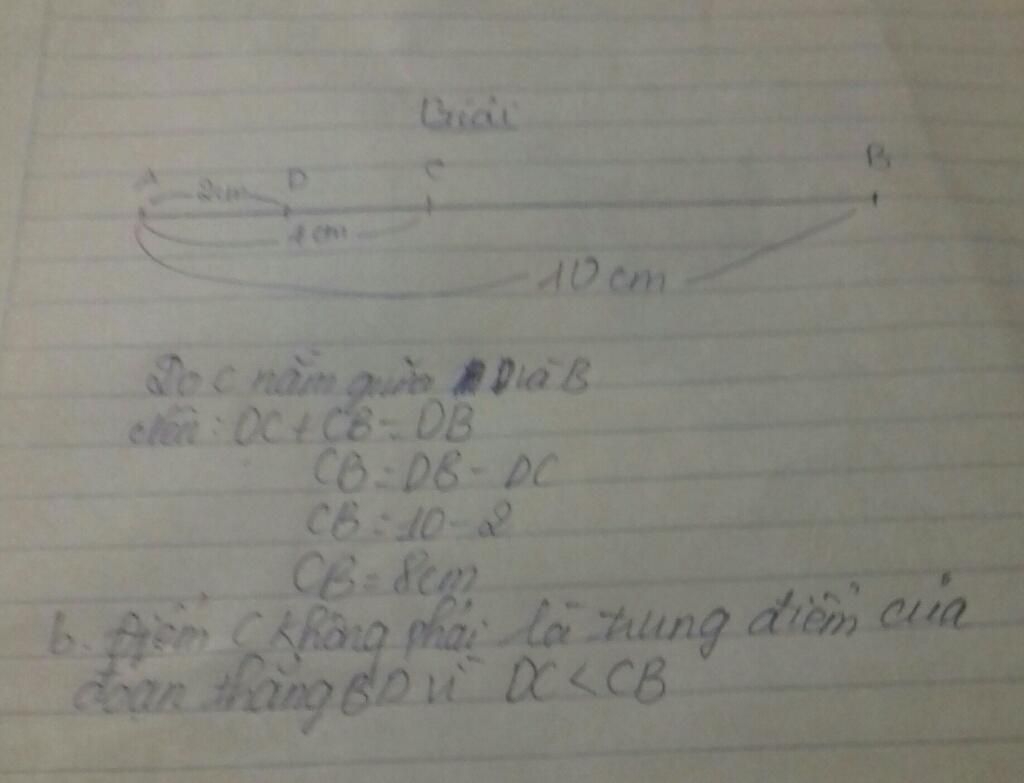 Giải
A 2cm D C B
4cm
10 cm
Do C nằm giữa D và B
nên: DC + CB = DB
CB = DB - DC
CB = 10 - 2
CB = 8cm
b. Điểm C không phải là trung điểm của
đoạn thẳng BD vì DC < CB